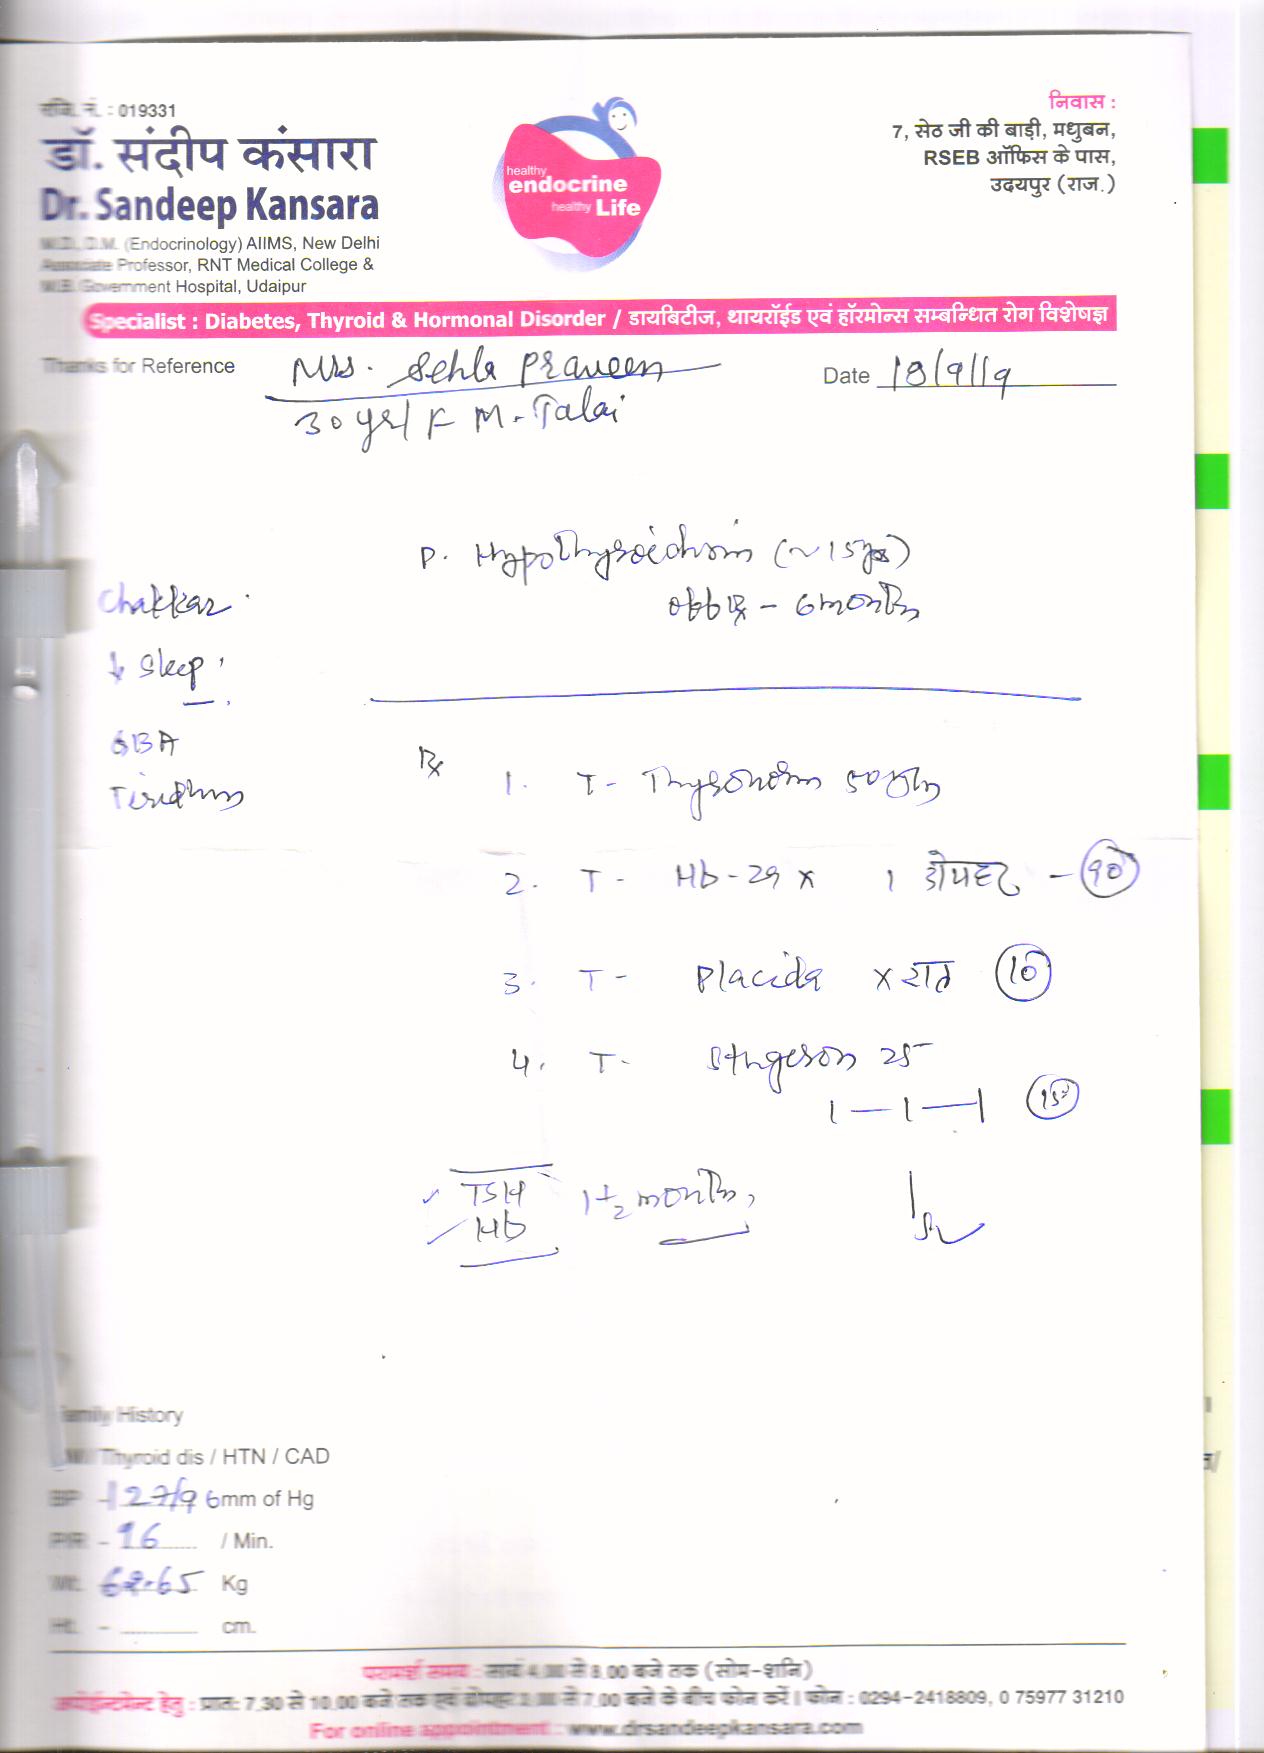 रजि. नं. : 019331
डॉ. संदीप कंसारा
Dr. Sandeep Kansara
M.D., D.M. (Endocrinology) AIIMS, New Delhi
Associate Professor, RNT Medical College &
M.B. Government Hospital, Udaipur
healthy
endocrine
healthy Life
निवास :
7, सेठ जी की बाड़ी, मधुबन,
RSEB ऑफिस के पास,
उदयपुर (राज.)
Specialist : Diabetes, Thyroid & Hormonal Disorder / डायबिटीज, थायरॉईड एवं हॉरमोन्स सम्बन्धित रोग विशेषज्ञ
Thanks for Reference Mrs. Sehla Praveen Date 18/9/19
30 yrs/ F M. Talai
P. Hypothyroidism (~15 yrs)
off Rx - 6 months
Chakkar
↓ Sleep
GBA
Rx
1. T-
2. T- Hb-29 x 1 दोपहर - 90
3. T- Placida x रात 10
4. T- Stugeron 25
1-1-1
TSH
Hb
months
Family History
Thyroid dis / HTN / CAD
BP - 127/96 mm of Hg
P/R - 96 / Min.
Wt. 62.65 Kg
Ht. - cm.
परामर्श समय : सायं 4.00 से 8.00 बजे तक (सोम-शनि)
अपोईन्टमेन्ट हेतु : प्रात: 7.30 से 10.00 बजे तक एवं दोपहर 3.00 से 7.00 बजे के बीच फोन करें । फोन : 0294-2418809, 0 75977 31210
For online appointment : www.drsandeepkansara.com